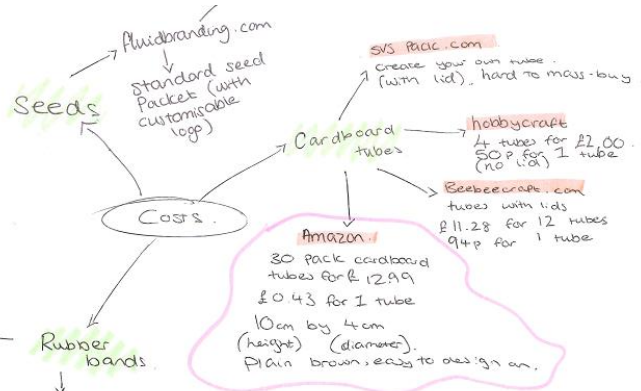 fluidbranding.com
standard seed
Packet (with
customisable
logo)
Seeds
svs Pack.com
create your own tube.
(with lid), hard to mass-buy
Cardboard
tubes
hobbycraft
4 tubes for £2.00.
50p for 1 tube
(no lid)
Beebeecraft.com
tubes with lids
£11.28 for 12 tubes
94p for 1 tube
Costs.
Amazon.
30 pack cardboard
tubes for £12.99
£0.43 for 1 tube
10cm by 4cm
(height) (diameter).
Plain brown, easy to design on.
Rubber
bands.